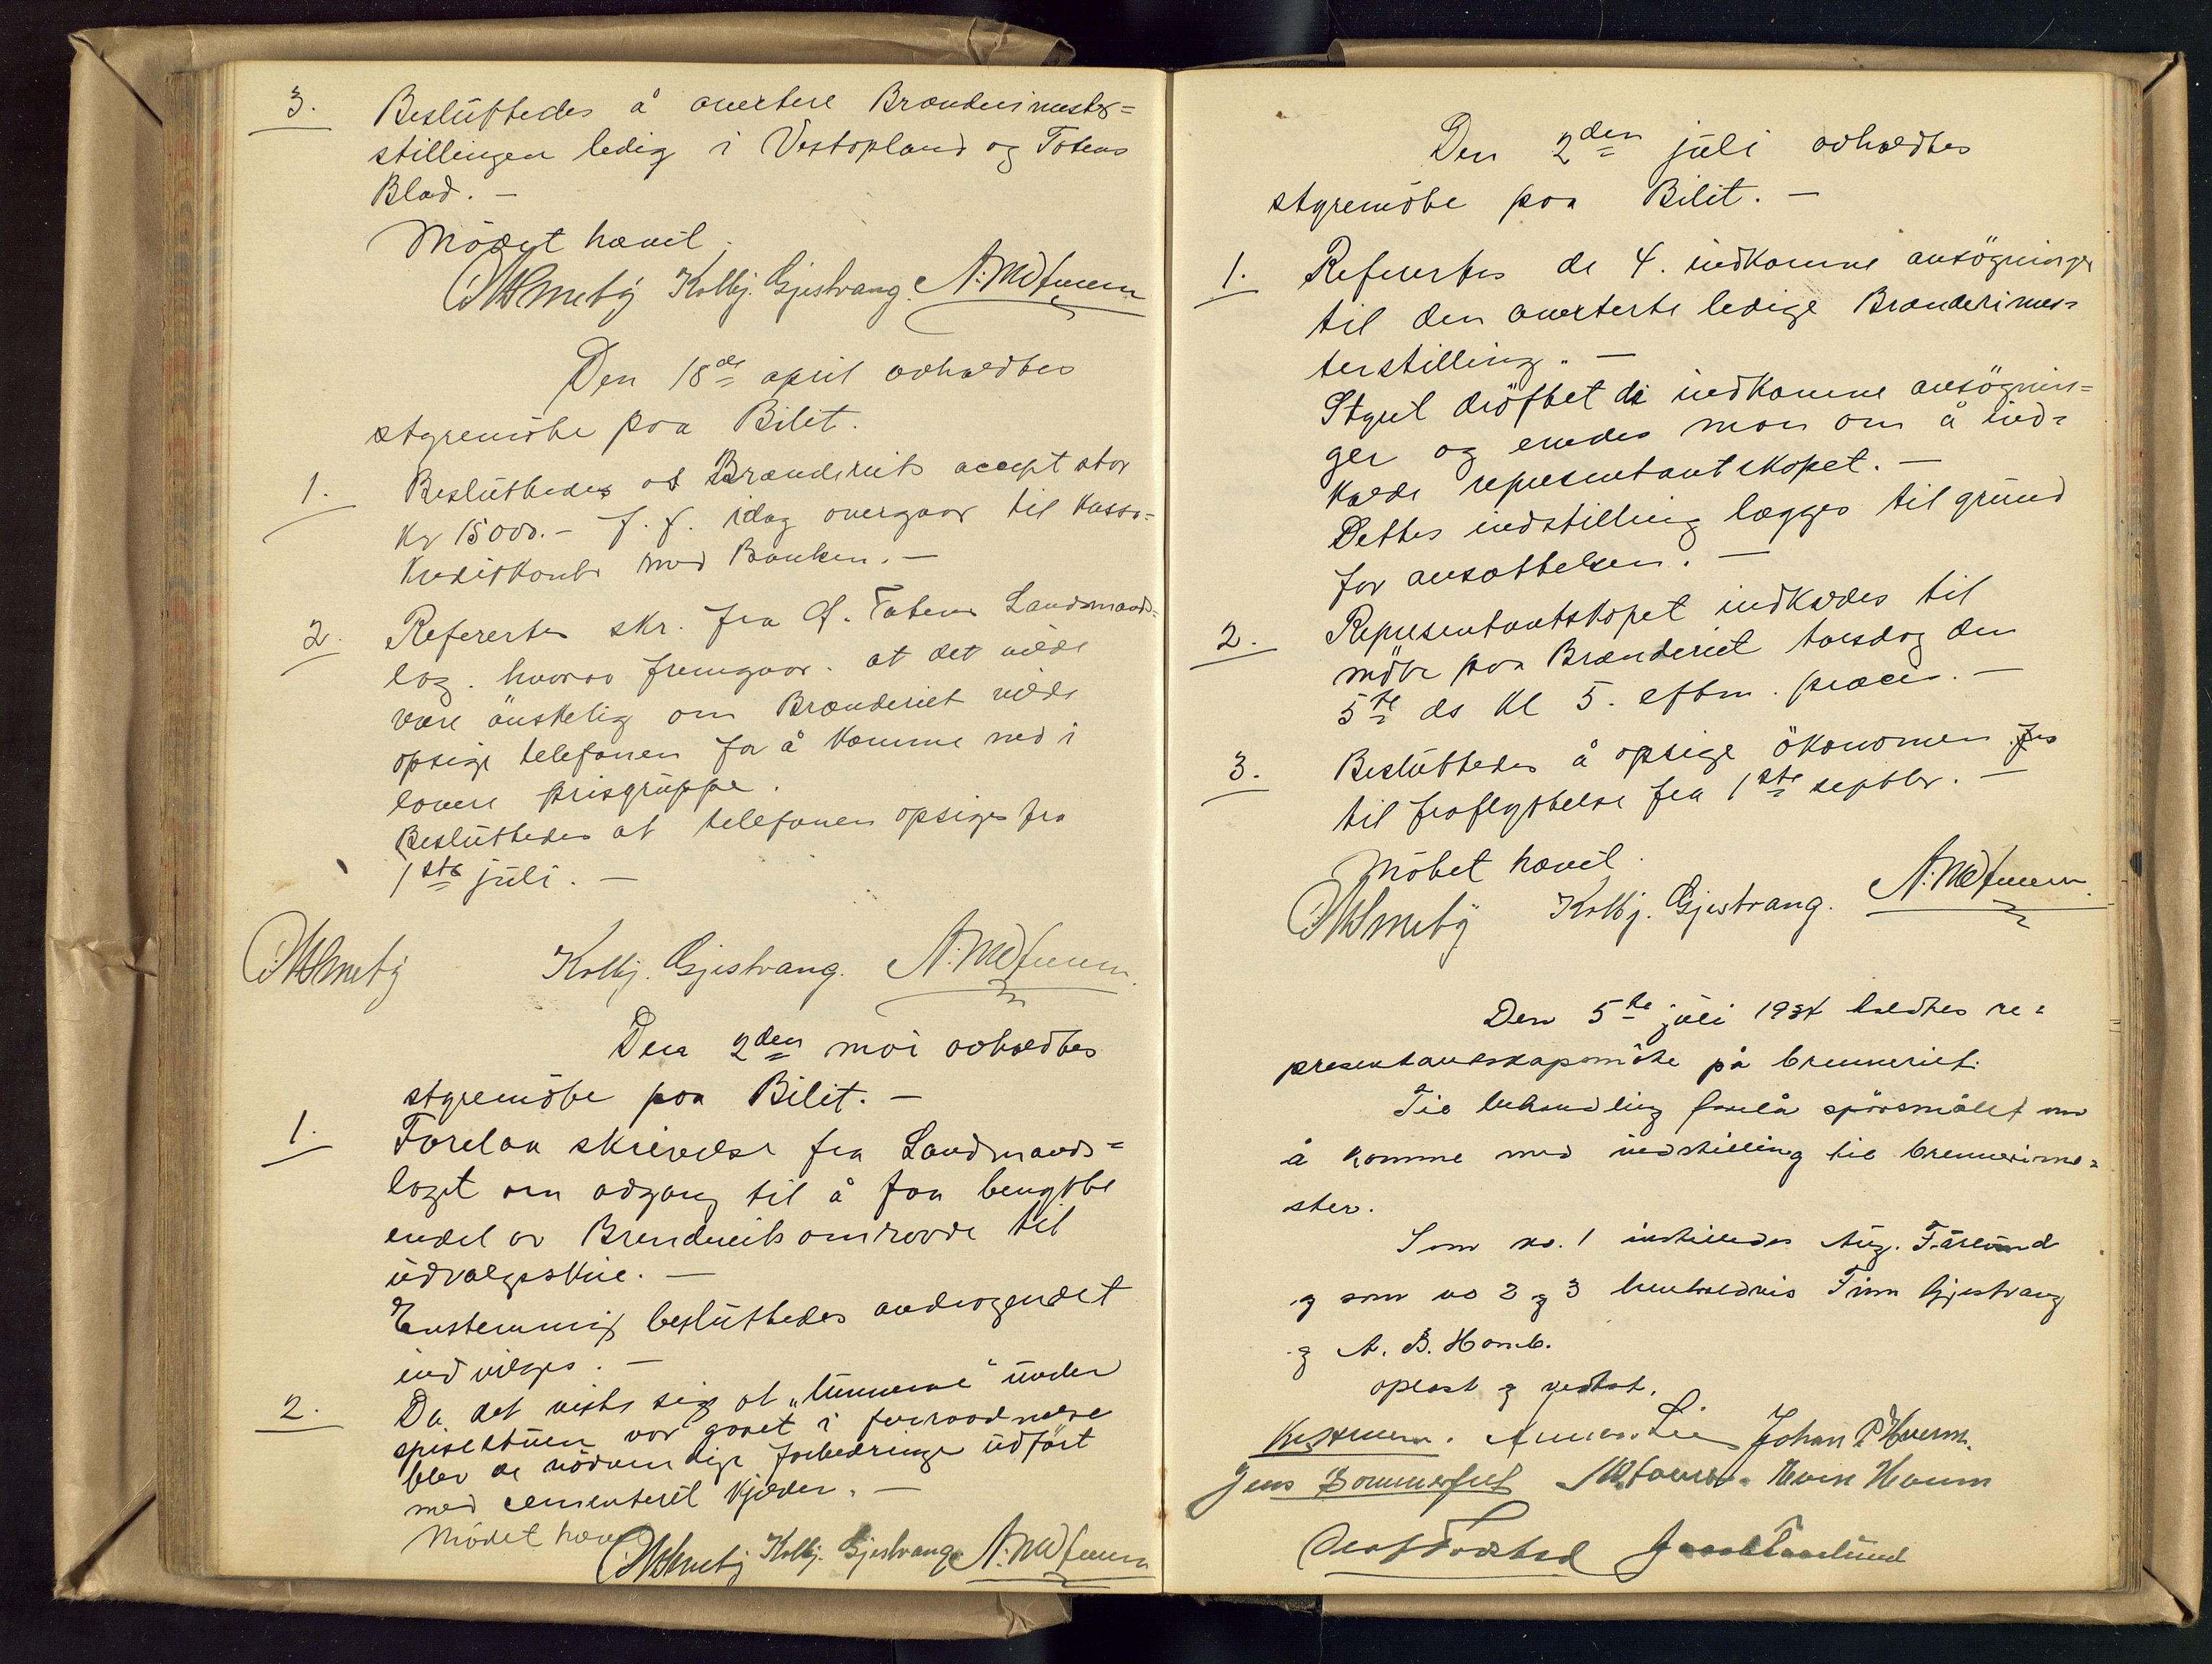 3. Beslüttedes å avertere Brænderimester=
stillingen ledig i Vestopland og Totens
Blad. —
Mödet hævet.
Kolbj. Gjestvang.
Den 18de april avholdtes
styremöte paa Bilit.
1. Beslüttedes at Brænderiets accept stor
Kr 15000.- f. f. idag overgaar til Kasse=
Kreditkonto med Banken. —
2. Refertes skr. fra Ö. Totens Landmands=
lag. hvorav fremgaar. at det vilde
være önskelig om Brænderiet vilde
opsige telefonen for å komme ned i
lavere prisgrüppe.
Beslüttedes at telefonen opsiges fra
1ste jüli. —
Kolbj. Gjestvang.
Den 2den mai avholdtes
styremöte paa Bilit. —
1. Forelaa skrivelse fra Landmands=
laget om adgang til å faa benytte
endel av Brenderiets omraade til
üdvalgsskue. —
Enstemmig beslüttedes andragendet
indvilges. —
2. Da det viste sig at „tünnerne" ünder
spisestüen var gaaet i forraadnelse
blev de nödvendige forbedringer üdfört
med cementeret kjelder. —
Mödet hævet
Kolbj. Gjestvang
Den 2den jüli avholdtes
styremöte paa Bilit. —
1. Refertes de 4. indkomne ansögninger
til den averterte ledige Brænderimes=
terstilling. —
Styret dröftet de indkomne ansögnin=
ger og enedes man om å ind=
kalde representantskapet. —
Dettes indstilling lægges til gründ
for ansættelsen. —
2. Representantskapet indkaldes til
möte paa Brænderiet torsdag den
5te ds kl 5. eftm. præcis. —
3. Beslüttedes å opsige ökonomen
til fraflyttelse fra 1ste septbr. —
Mötet hævet.
Kolbj. Gjestvang.
Den 5te jüli 1934 holdtes re=
presentantskapsmöte på brenneriet.
Til behandling forelå spörsmålet om
å komme med indstilling til brennerime=
ster.
Som no. 1 instilledes Aüg. Färlünd
og som no 2 og 3 henholdsvis Finn Gjestvang
og A. B. Homb.
oplæst og vedtat.
Johan P Hveem.
Jens Sommerfelt